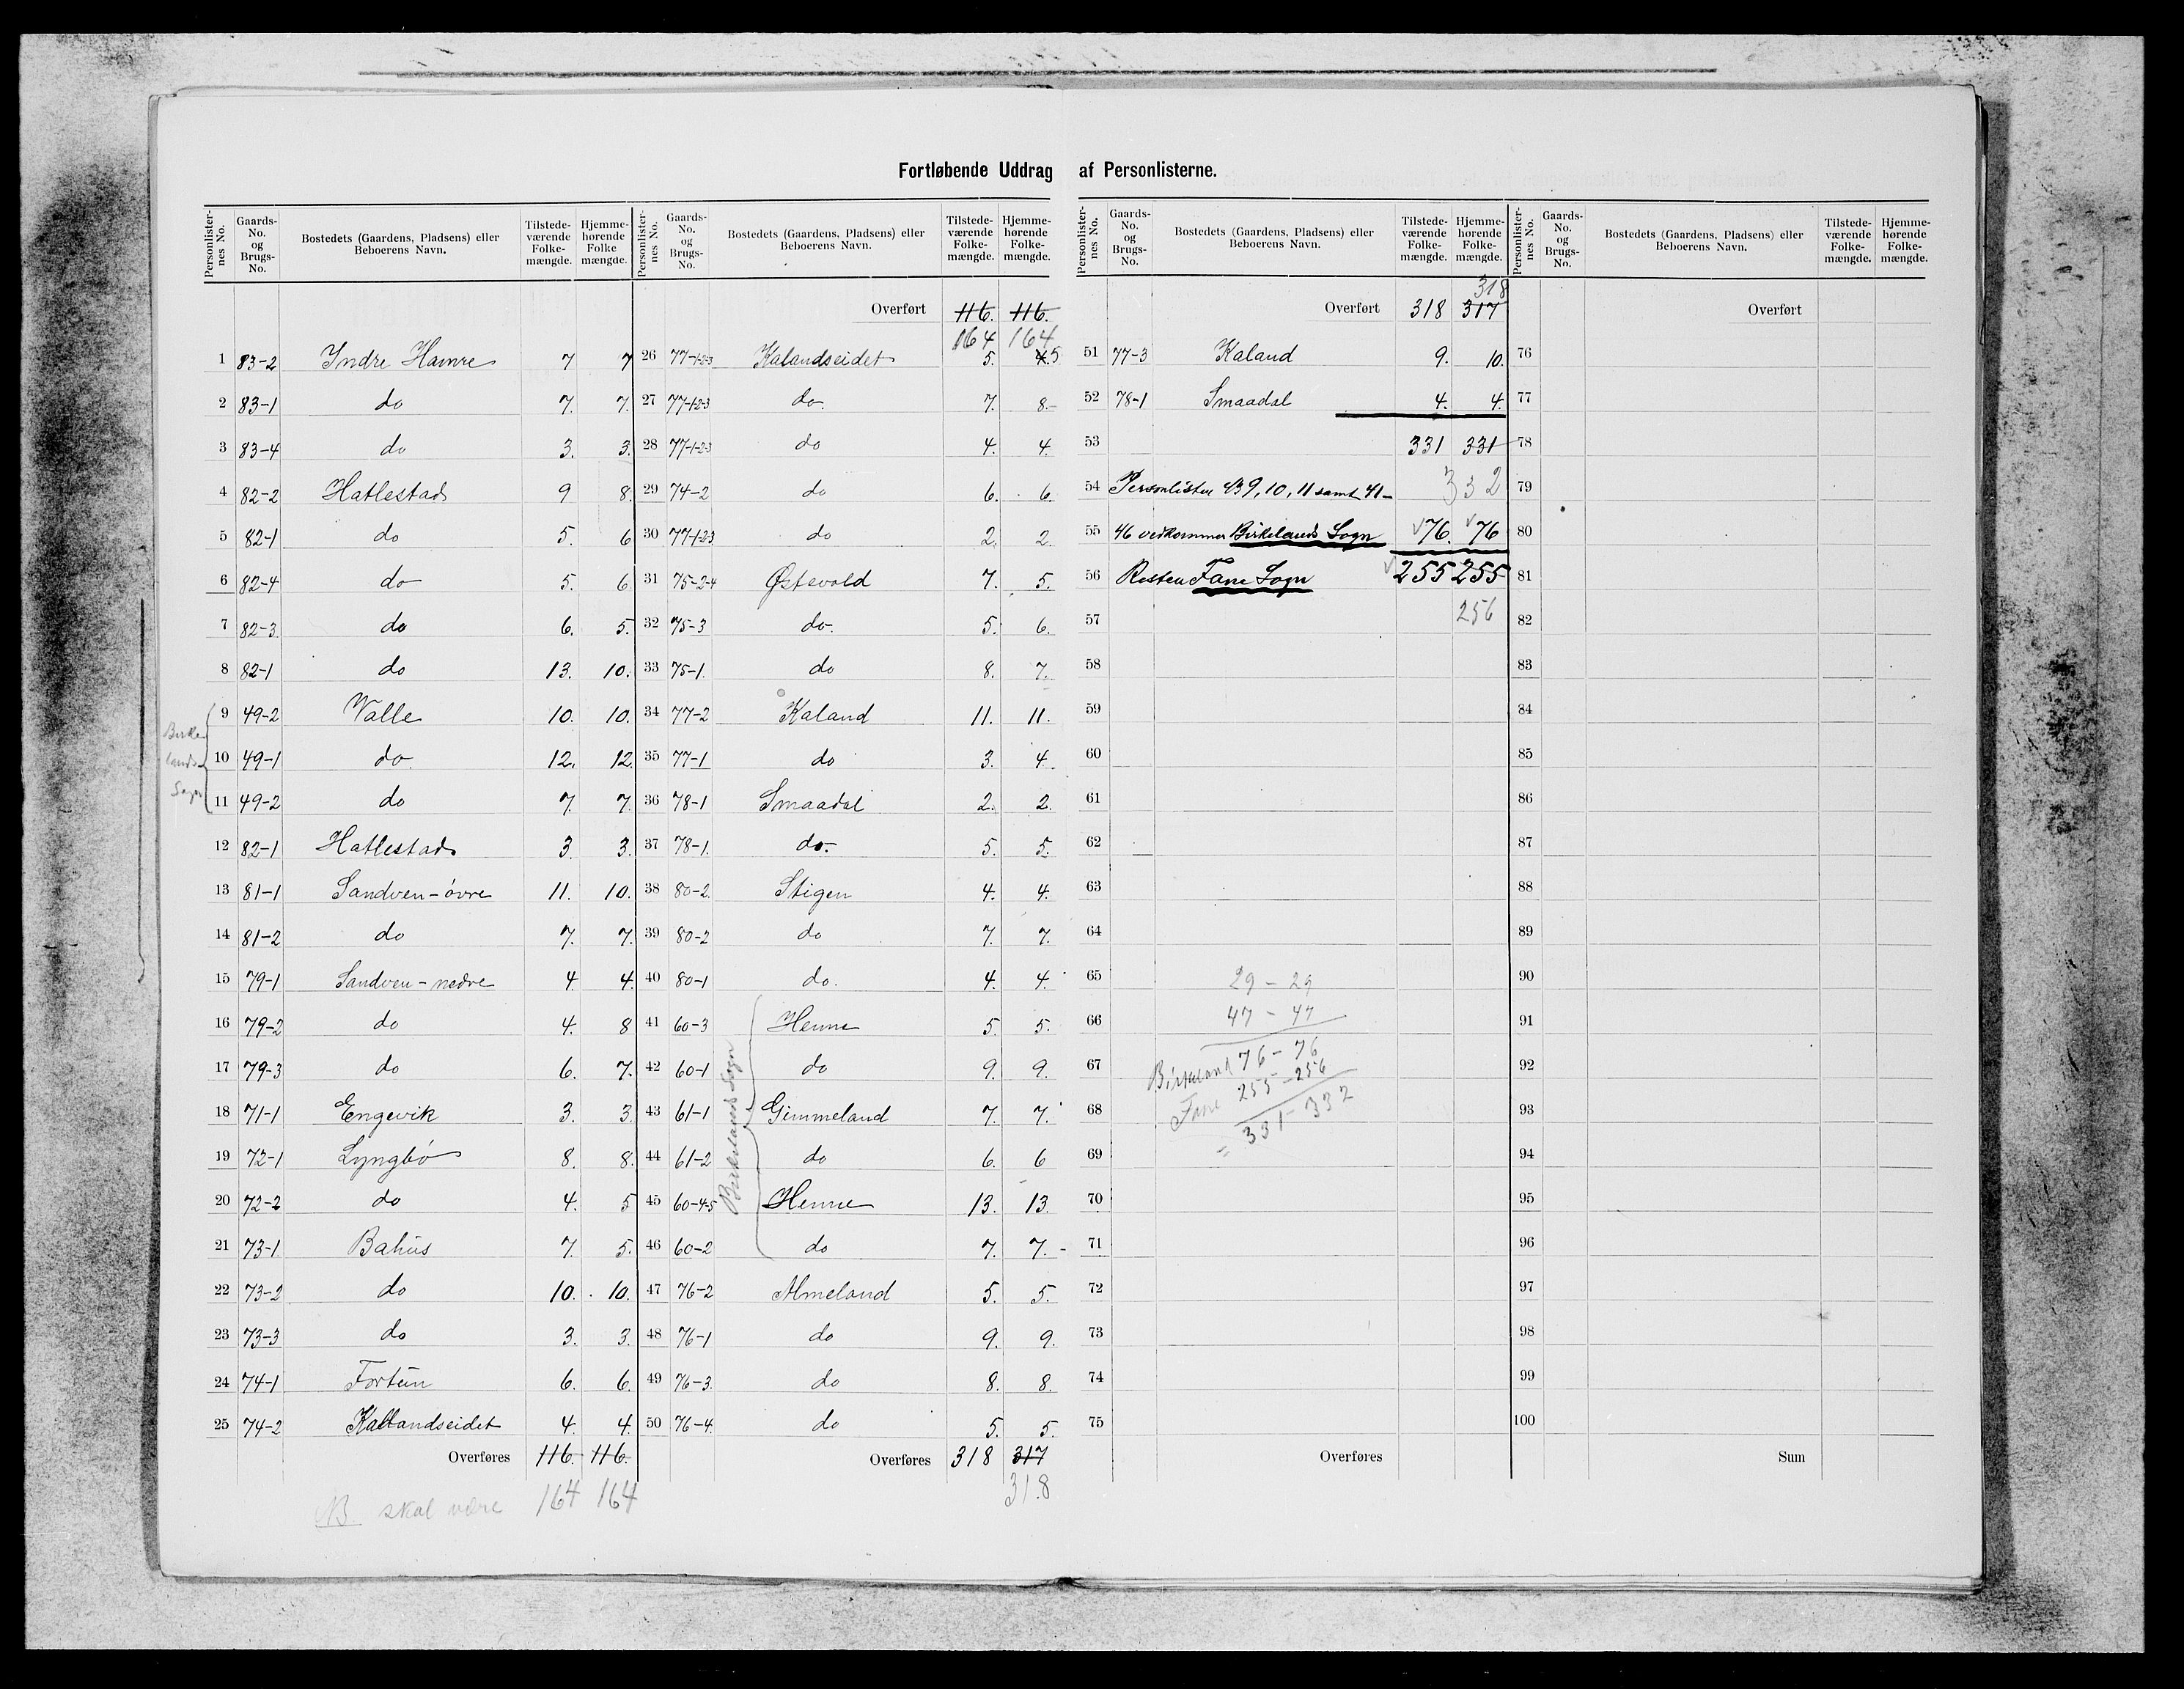 Fortløbende Uddrag af Personlisterne.
Personlisternes No. Gaards-No. og Brugs-No. Bostedets (Gaardens, Pladsens) eller Beboerens Navn. Tilstedeværende Folkemængde. Hjemmehørende Folkemængde.
1 83-2 Yndre Hamre 7 7
2 83-1 do 7. 7.
3 83-4 do 3. 3.
4 82-2 Hatlestad 9 8.
5 82-1 do 5. 6
6 82-4 do 5. 6
7 82-3. do 6. 5.
8 82-1 do 13. 10.
Birkelands Sogn
9 49-2 Valle 10. 10.
10 49-1 do 12. 12
11 49-2 do 7. 7.
12 82-1 Hatlestad 3. 3.
13 81-1 Sandven-övre 11. 10.
14 81-2 do 7. 7.
15 79-1 Sandven-nedre 4 4.
16 79-2 do 4. 8
17 79-3 do 6. 7.
18 71-1 Engevik 3. 3.
19 72-1 Lyngbö 8. 8.
20 72-2 do 4. 5
21 73-1 Bahus 7. 5.
22 73-2 do 10. 10.
23 73-3 do 3. 3.
24 74-1 Fortun 6. 6.
25 74-2 Kallandseidet 4. 4.
Overføres 116. 116.
NB skal være 164 164
Overført 116. 116.
164 164
26 77-1-2-3 Kalandseidet 5. 4.5
27 77-1-2-3 do. 7. 8.
28 77-1-2-3 do 4. 4.
29 74-2 do 6. 6.
30 77-1-2-3 do 2. 2.
31 75-2-4 Østevold 7. 5.
32 75-3 do. 5. 6.
33 75-1. do 8. 7.
34 77-2 Kaland 11. 11.
35 77-1 do 3. 4.
36 78-1 Smaadal 2. 2.
37 78-1. do. 5. 5.
38 80-2. Stigen 4. 4.
39 80-2 do 7. 7.
40 80-1 do. 4. 4.
Birkelands Sogn
41 60-3 Henne 5. 5.
42 60-1 do 9. 9.
43 61-1 Gimmeland 7. 7.
44 61-2 do 6. 6
45 60-4-5 Henne 13. 13.
46 60-2 do 7. 7.
47 76-2 Almeland 5. 5.
48 76-1 do 9. 9.
49 76-3. do 8. 8.
50 76-4. do 5. 5.
Overføres 318 317
318
318
Overført 318 317
51 77-3 Kaland 9. 10.
52 78-1 Smaadal 4. 4.
53 331 331
54 Personlister No 9, 10, 11 samt 41- 332
55 46 vedkommer Birkelands Sogn 76. 76
56 Resten Fane Sogn 255 255
57 256
58
59
60
61
62
63
64
65 29 - 29
66 47 - 47
67 Birkeland 76 - 76
Fane 255 - 256
68 = 331 - 332
69
70
71
72
73
74
75
Overføres
Overført
76
77
78
79
80
81
82
83
84
85
86
87
88
89
90
91
92
93
94
95
96
97
98
99
100
Sum